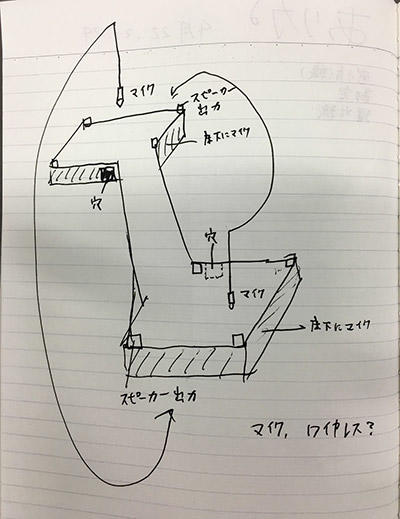 マイク
スピーカー
出力
床下にマイク
穴
穴
マイク
床下にマイク
スピーカー出力
マイク、ワイヤレス?